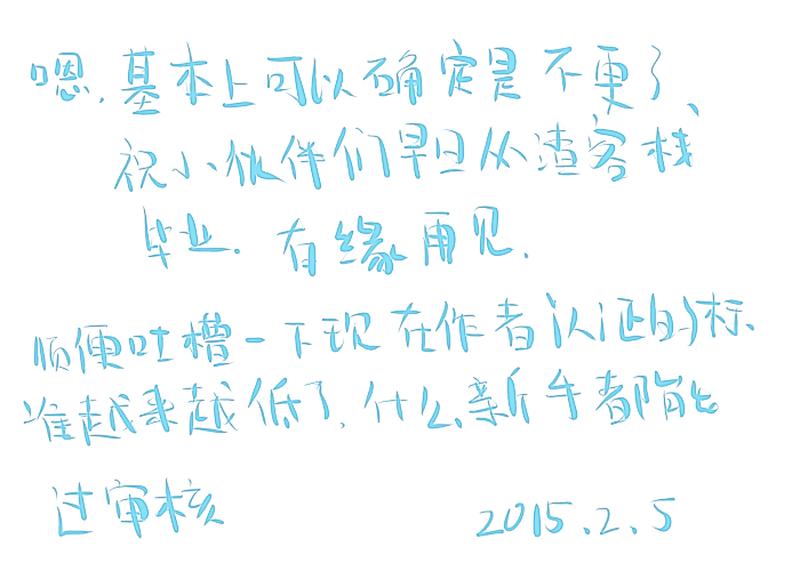 嗯.基本上可以确定是不更了、
祝小伙伴们早日从渣客栈
毕业.有缘再见.
顺便吐槽一下现在作者认证的标
准越来越低了,什么新手都能
过审核
2015.2.5